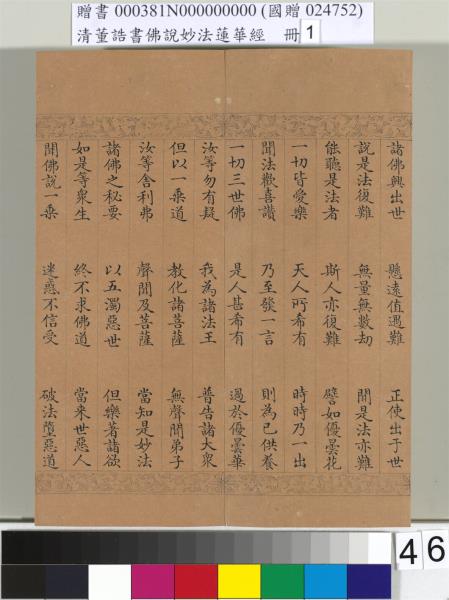 贈書 000381N000000000 (國贈 024752)
清董誥書佛說妙法蓮華經 冊 1
諸佛興出世 懸遠值遇難 正使出于世
說是法復難 無量無數劫 聞是法亦難
能聽是法者 斯人亦復難 譬如優曇花
一切皆愛樂 天人所希有 時時乃一出
聞法歡喜讚 乃至發一言 則為已供養
一切三世佛 是人甚希有 過於優曇華
汝等勿有疑 我為諸法王 普告諸大衆
但以一乗道 教化諸菩薩 無聲聞弟子
汝等舍利弗 聲聞及菩薩 當知是妙法
諸佛之秘要 以五濁惡世 但樂著諸欲
如是等衆生 終不求佛道 當来世惡人
聞佛說一乗 迷惑不信受 破法墮惡道
46